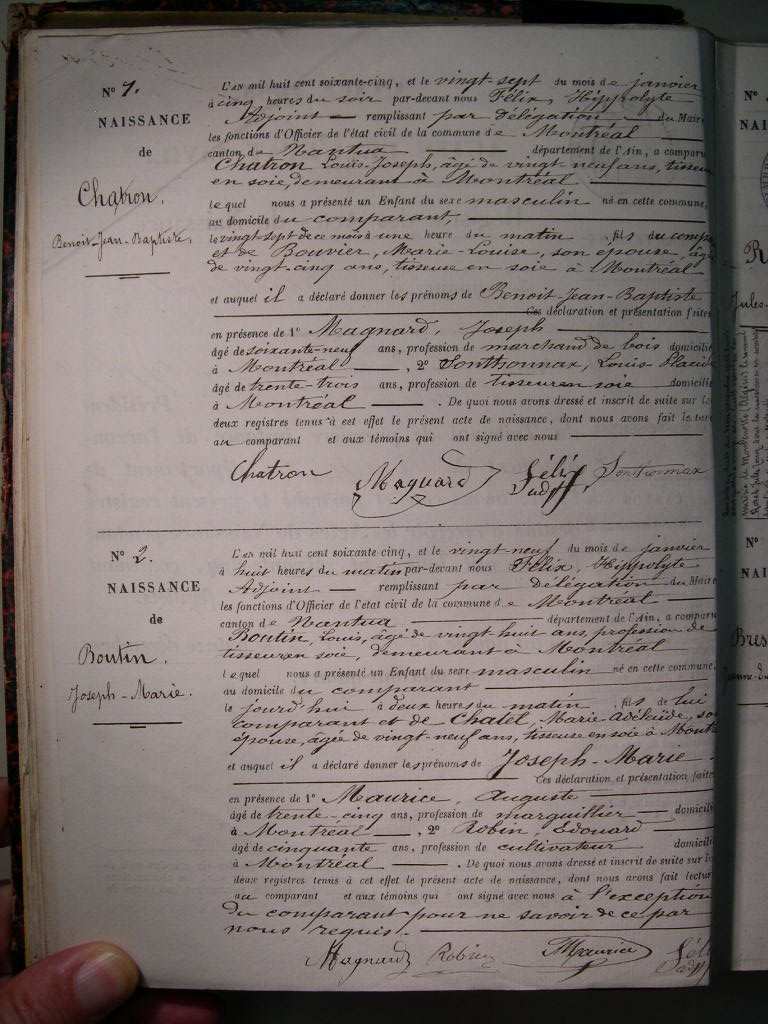 N° 1.
NAISSANCE
de
Chatron.
Benoit-Jean-Baptiste.
L'AN mil huit cent soixante-cinq, et le vingt-sept du mois de janvier
à cinq heures du soir par-devant nous Félix, Hippolyte
Adjoint — remplissant par délégation — du Maire
les fonctions d'Officier de l'état civil de la commune de Montréal
canton de Nantua — département de l'Ain, a comparu
Chatron Louis-Joseph, âgé de vingt-neuf ans, tisseur
en soie, demeurant à Montréal
lequel nous a présenté un Enfant du sexe masculin né en cette commune,
au domicile du comparant,
le vingt-sept de ce mois à une heure du matin, fils du comp
et de Bouvier, Marie-Louise, son épouse, âg
de vingt-cinq ans, tisseuse en soie à Montréal
et auquel il a déclaré donner les prénoms de Benoit-Jean-Baptiste
Ces déclaration et présentation faites
en présence de 1° Magnard, Joseph
âgé de soixante-neuf ans, profession de marchand de bois domicilié
à Montréal —, 2° Sonthonnax, Louis-Placide
âgé de trente-trois ans, profession de tisseur en soie domicilié
à Montréal — . De quoi nous avons dressé et inscrit de suite sur le
deux registres tenus à cet effet le présent acte de naissance, dont nous avons fait lecture
au comparant et aux témoins qui ont signé avec nous
Chatron Magnard Félix adjt. Sonthonnax
N° 2.
NAISSANCE
de
Boutin.
Joseph-Marie.
L'AN mil huit cent soixante-cinq, et le vingt-neuf du mois de janvier
à huit heures du matin par-devant nous Félix, Hippolyte
Adjoint — remplissant par délégation du Maire
les fonctions d'Officier de l'état civil de la commune de Montréal
canton de Nantua — département de l'Ain, a comparu
Boutin, Louis, âgé de vingt-huit ans, profession de
tisseur en soie, demeurant à Montréal
lequel nous a présenté un Enfant du sexe masculin né en cette commune,
au domicile du comparant
le jourd'hui à deux heures du matin, fils de lui
comparant et de Chatel, Marie-Adélaïde, so
épouse, âgée de vingt-neuf ans, tisseuse en soie à Montr
et auquel il a déclaré donner les prénoms de Joseph-Marie
Ces déclaration et présentation faite
en présence de 1° Maurice, Auguste
âgé de trente-cinq ans, profession de marguillier — domicilié
à Montréal —, 2° Robin, Edouard
âgé de cinquante ans, profession de cultivateur domicilié
à Montréal — . De quoi nous avons dressé et inscrit de suite sur le
deux registres tenus à cet effet le présent acte de naissance, dont nous avons fait lectur
au comparant et aux témoins qui ont signé avec nous à l'exception
du comparant pour ne savoir de ce par
nous requis.
Magnard Robin Maurice Félix adjt